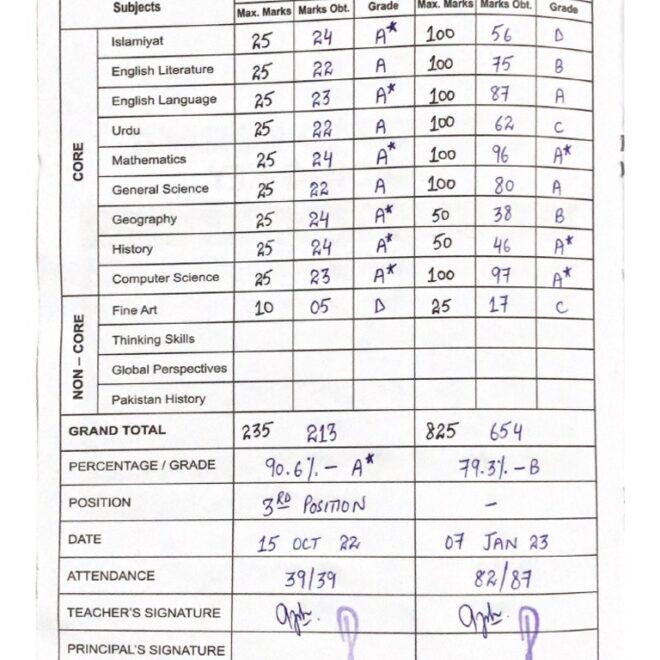 Subjects Max. Marks Marks Obt. Grade Max. Marks Marks Obt. Grade
CORE
Islamiyat 25 24 A* 100 56 D
English Literature 25 22 A 100 75 B
English Language 25 23 A* 100 87 A
Urdu 25 22 A 100 62 C
Mathematics 25 24 A* 100 96 A*
General Science 25 22 A 100 80 A
Geography 25 24 A* 50 38 B
History 25 24 A* 50 46 A*
Computer Science 25 23 A* 100 97 A*
NON - CORE
Fine Art 10 05 D 25 17 C
Thinking Skills
Global Perspectives
Pakistan History
GRAND TOTAL 235 213 825 654
PERCENTAGE / GRADE 90.6% - A* 79.3% - B
POSITION 3RD POSITION -
DATE 15 OCT 22 07 JAN 23
ATTENDANCE 39/39 82/87
TEACHER'S SIGNATURE
PRINCIPAL'S SIGNATURE